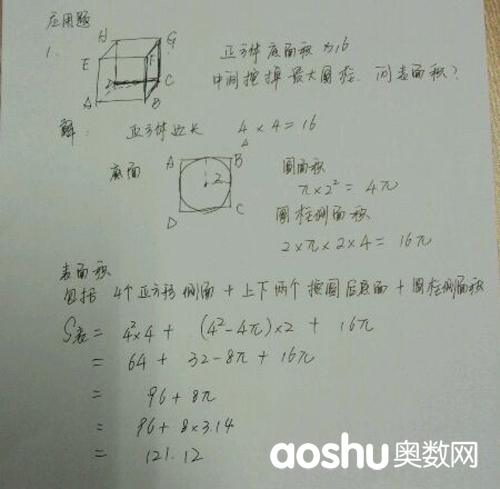 应用题
1.
H G
E F
D C
A B
正方体底面积为16
中间挖掉最大圆柱. 问表面积?
解: 正方体边长 4×4=16
底面
A B
2
D C
圆面积
π×2²=4π
圆柱侧面积
2×π×2×4=16π
表面积
包括 4个正方形侧面+上下两个挖圆后底面+圆柱侧面积
S表= 4²×4 + (4²-4π)×2 + 16π
= 64 + 32-8π + 16π
= 96+8π
= 96+8×3.14
= 121.12
aoshu奥数网